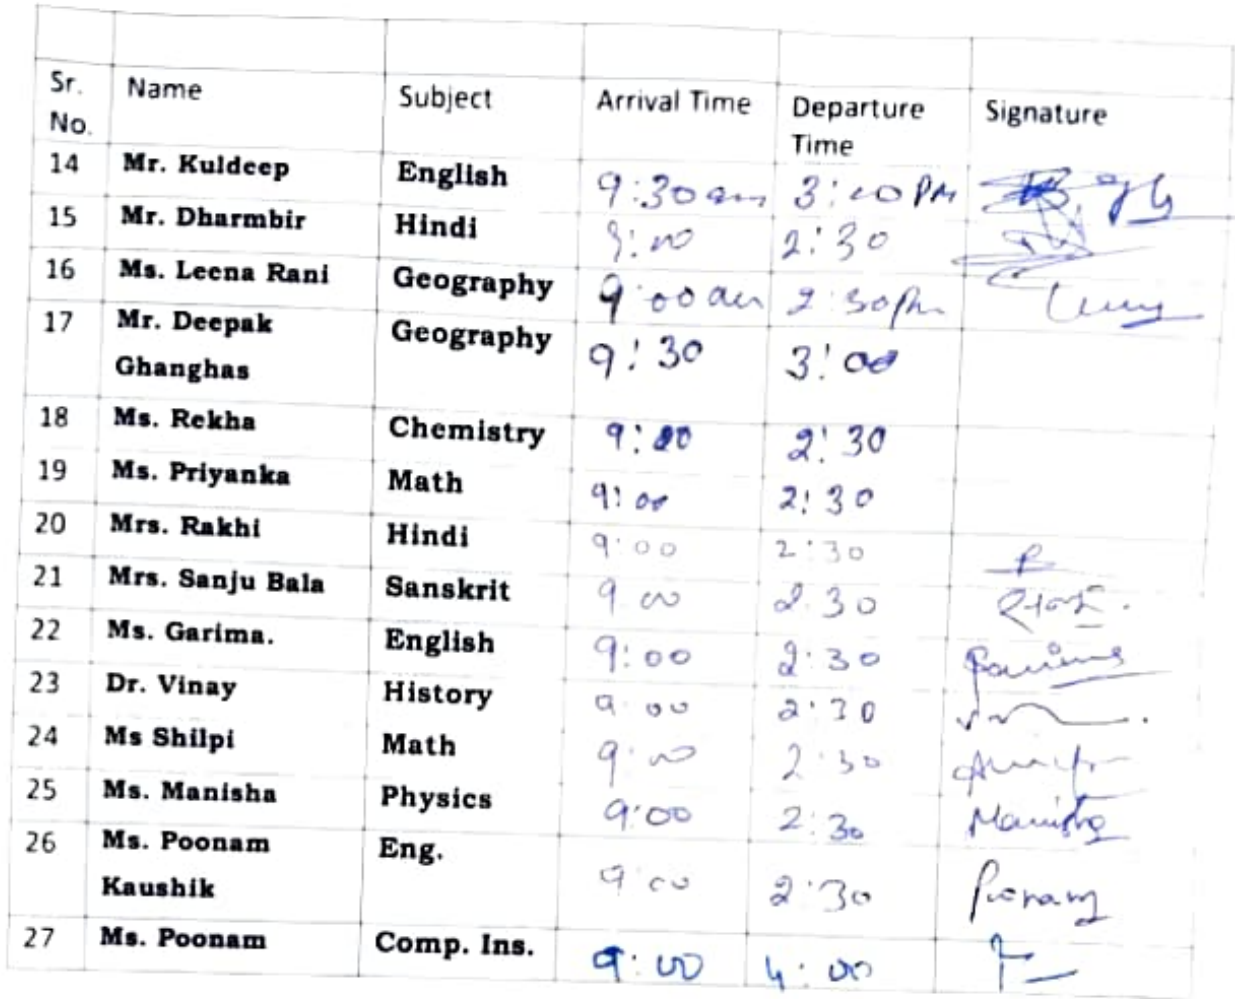 Sr. No. Name Subject Arrival Time Departure Time Signature
14 Mr. Kuldeep English 9:30am 3:00 PM
15 Mr. Dharmbir Hindi 9:00 2:30
16 Ms. Leena Rani Geography 9:00am 2:30pm
17 Mr. Deepak Ghanghas Geography 9:30 3:00
18 Ms. Rekha Chemistry 9:00 2:30
19 Ms. Priyanka Math 9:00 2:30
20 Mrs. Rakhi Hindi 9:00 2:30
21 Mrs. Sanju Bala Sanskrit 9:00 2:30
22 Ms. Garima. English 9:00 2:30 Garima
23 Dr. Vinay History 9:00 2:30
24 Ms Shilpi Math 9:00 2:30
25 Ms. Manisha Physics 9:00 2:30 Manisha
26 Ms. Poonam Kaushik Eng. 9:00 2:30 Poonam
27 Ms. Poonam Comp. Ins. 9:00 4:00